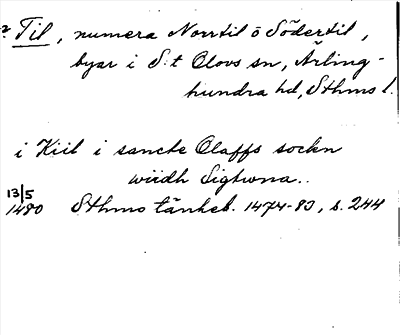 ? Til, numera Norrtil o Södertil,
byar i S:t Olovs sn, Ärling-
hundra hd, Sthms l.
i Kiil i sancte Olaffs sockn
wiidh Sigtwna..
13/5
1480 Sthms tänkeb. 1474-83, s. 244